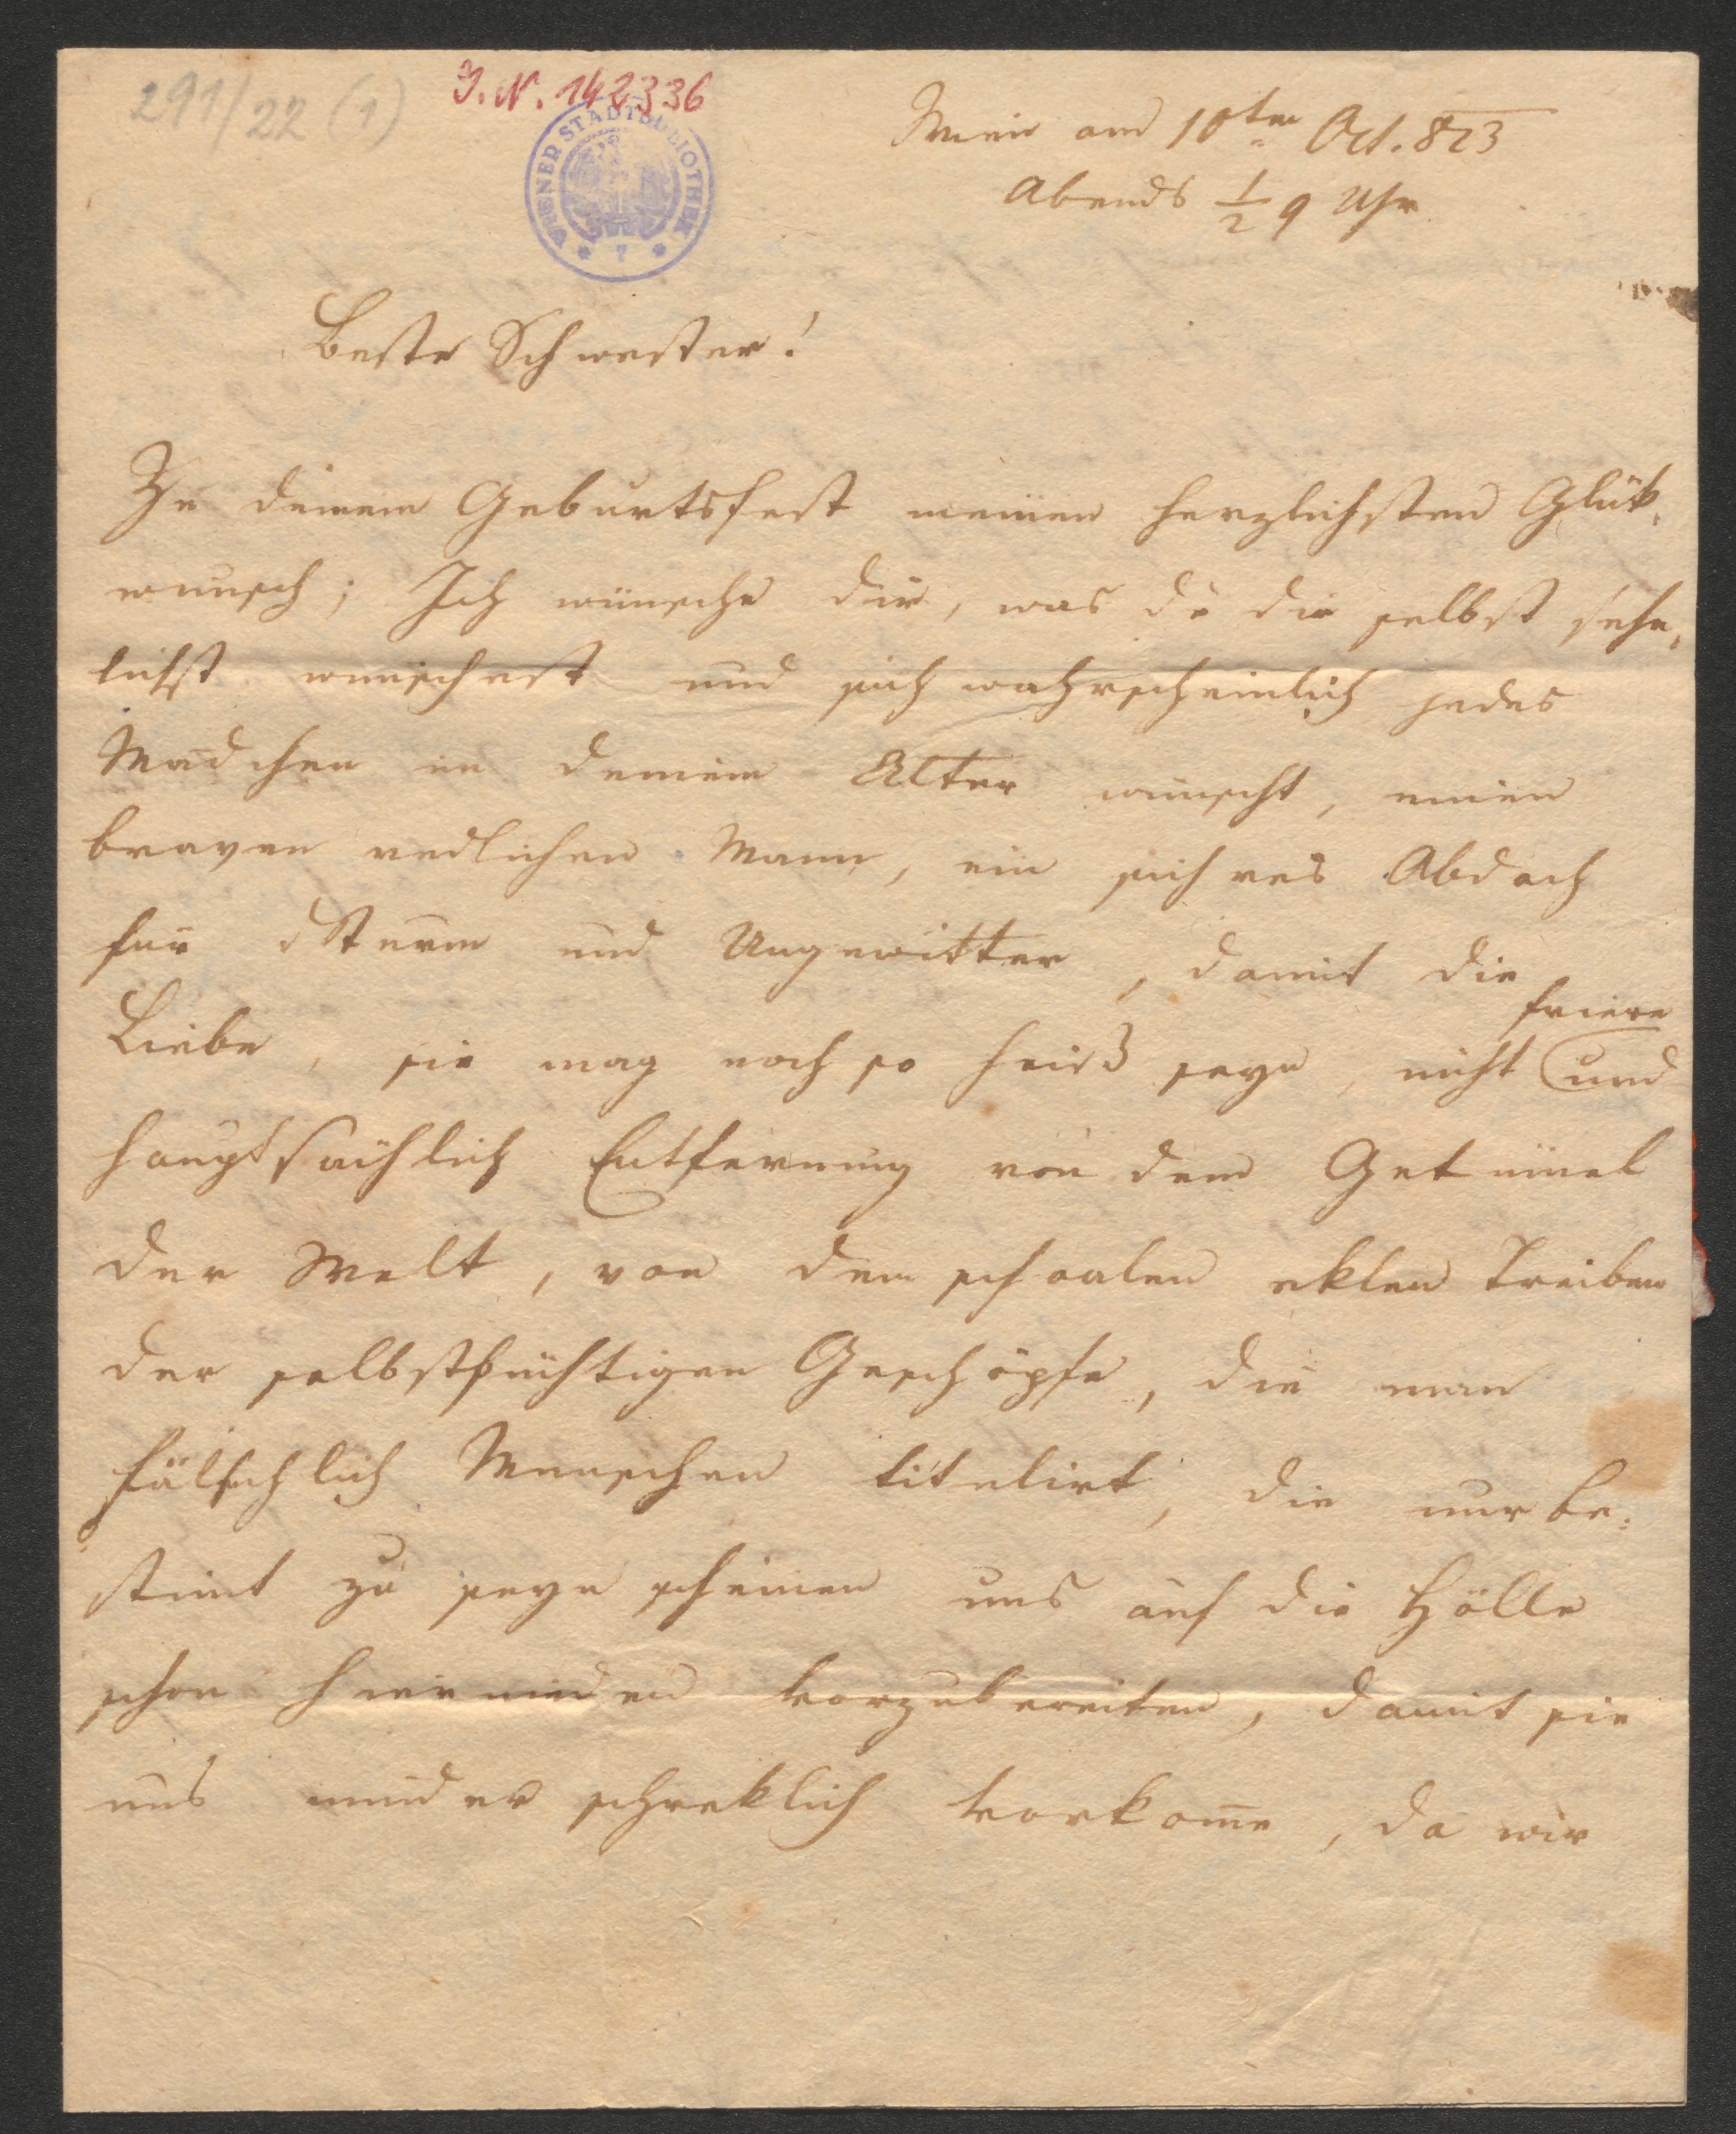 291/22 (1)
I.N. 142336
WIENER STADTBIBLIOTHEK
* 7 *
Wien am 10ten Oct. 823
Abends ½ 9 Uhr
Beste Schwester!
Zu deinem Geburtsfest meinen herzlichsten Glük-
wunsch; Ich wünsche dir, was du dir selbst sehn-
lichst wünschest und sich wahrscheinlich jedes
Mädchen in deinem Alter wünscht, einen
braven redlichen Mann, ein sichres Abdach
für Sturm und Ungewitter, damit die
friere
Liebe, sie mag noch so heiß seyn, nicht und
hauptsächlich Entfernung von dem Getümel
der Welt, von dem schaalen eklen Treiben
der selbstsüchtigen Geschöpfe, die man
fälschlich Menschen titelirt, die nur be-
stimt zu seyn scheinen uns auf die Hölle
schon hiernieden vorzubereiten, damit sie
uns minder schreklich vorkom̅e, da wir